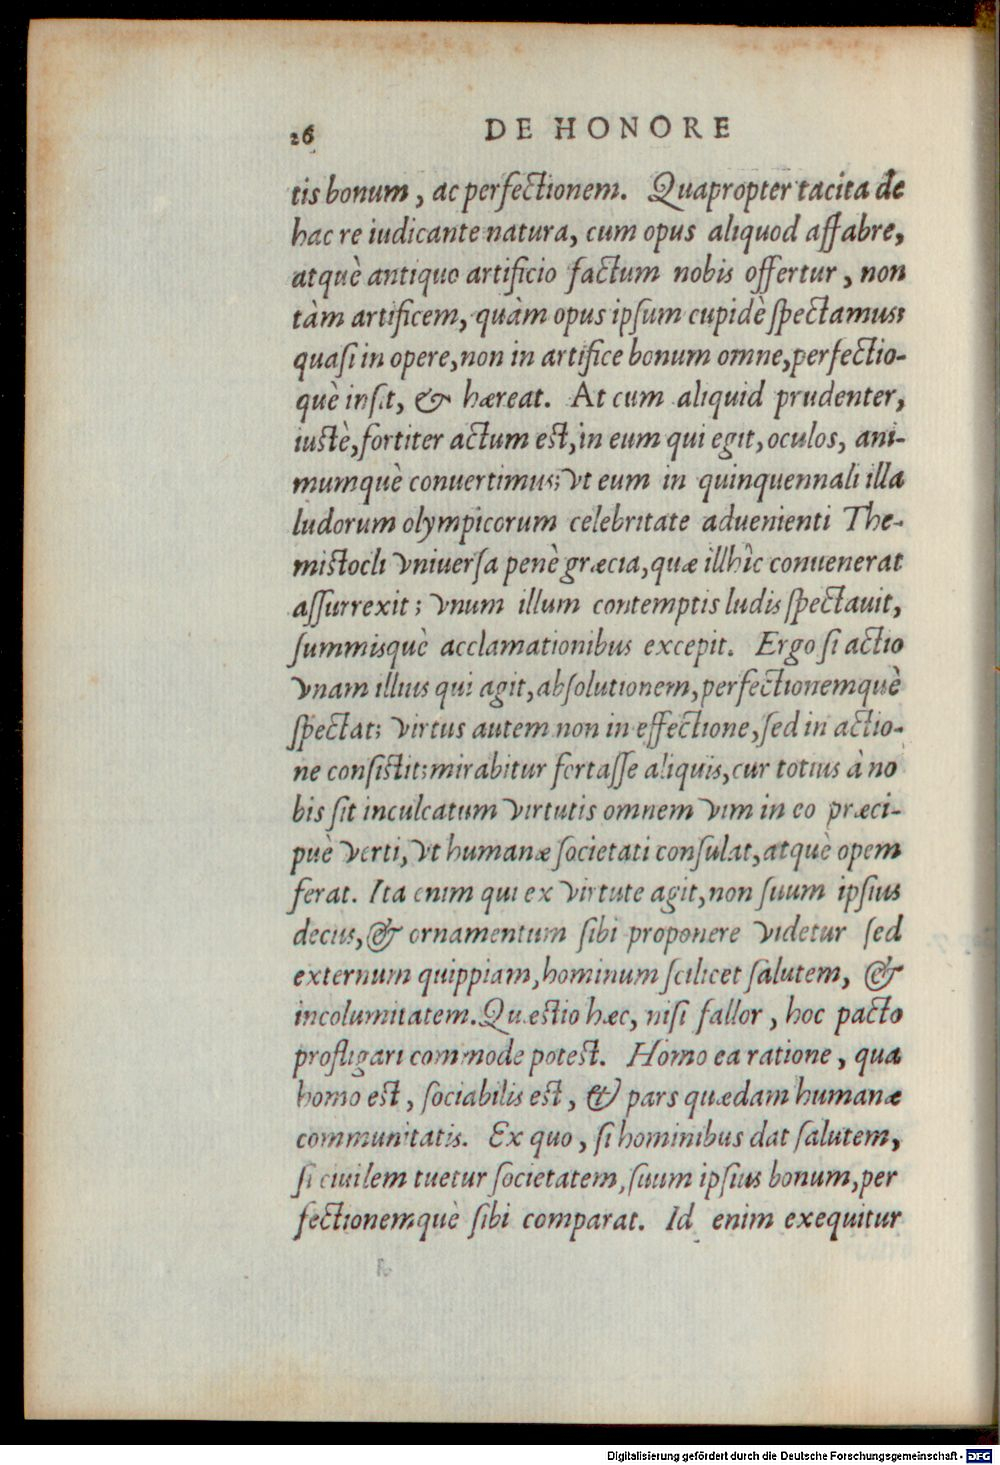 26 DE HONORE
tis bonum, ac perfectionem. Quapropter tacita de
hac re iudicante natura, cum opus aliquod affabre,
atquè antiquo artificio factum nobis offertur, non
tàm artificem, quàm opus ipſum cupidè ſpectamus;
quaſi in opere, non in artifice bonum omne, perfectio-
què inſit, & hæreat. At cum aliquid prudenter,
iustè, fortiter actum est, in eum qui egit, oculos, ani-
mumquè conuertimus; vt eum in quinquennali illa
ludorum olympicorum celebritate aduenienti The-
mistocli vniuerſa penè græcia, quæ illhîc conuenerat
aſſurrexit; vnum illum contemptis ludis ſpectauit,
ſummisquè acclamationibus excepit. Ergo ſi actio
vnam illius qui agit, abſolutionem, perfectionemquè
ſpectat; virtus autem non in effectione, ſed in actio-
ne conſistit; mirabitur fortaſſe aliquis, cur totius à no
bis ſit inculcatum virtutis omnem vim in eo præci-
puè verti, vt humanæ ſocietati conſulat, atquè opem
ferat. Ita enim qui ex virtute agit, non ſuum ipſius
decus, & ornamentum ſibi proponere videtur ſed
externum quippiam, hominum ſcilicet ſalutem, &
incolumitatem. Quæstio hæc, niſi fallor, hoc pacto
profligari commode potest. Homo ea ratione, qua
homo est, ſociabilis est, & pars quædam humanæ
communitatis. Ex quo, ſi hominibus dat ſalutem,
ſi ciuilem tuetur ſocietatem, ſuum ipſius bonum, per
fectionemquè ſibi comparat. Id enim exequitur
Digitalisierung gefördert durch die Deutsche Forschungsgemeinschaft - DFG